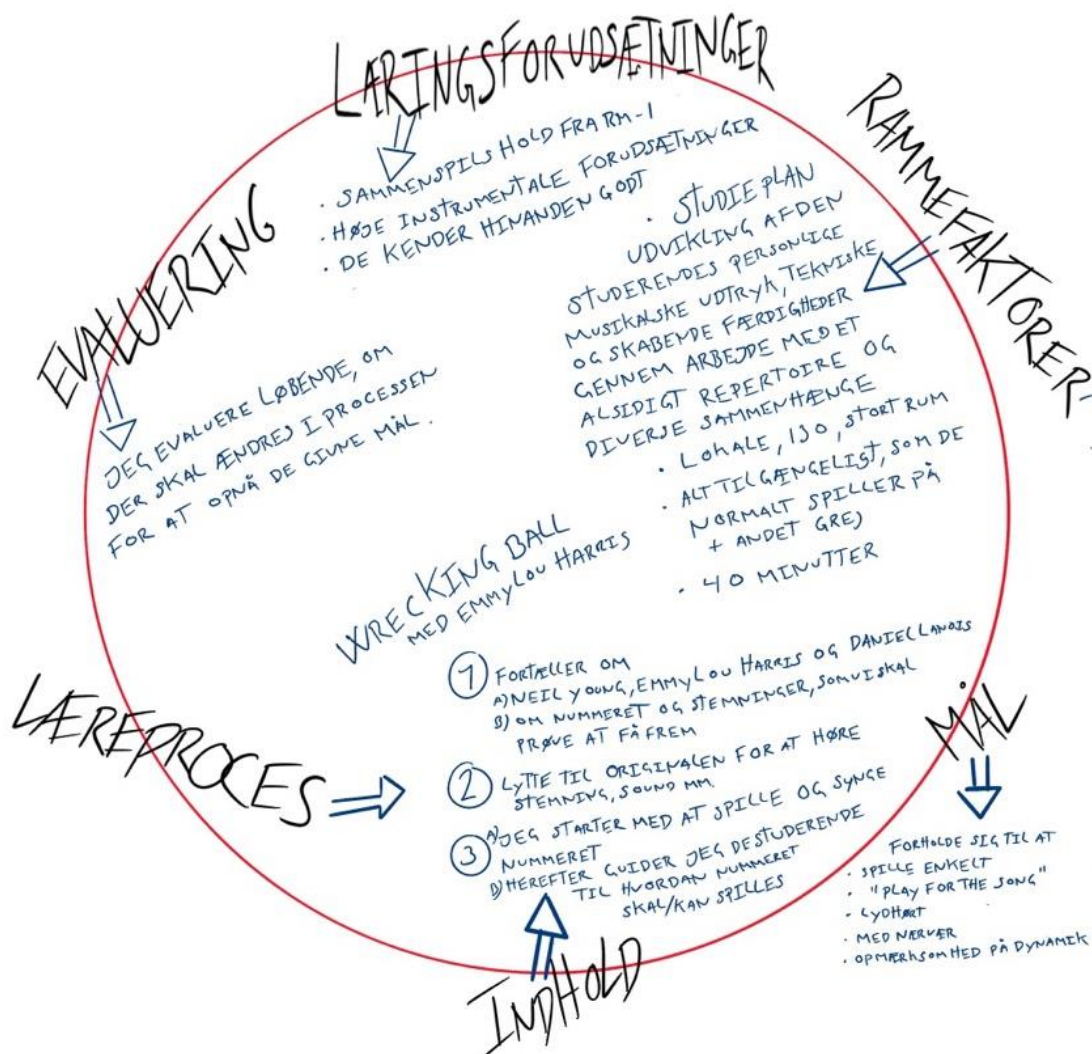 LÆRINGSFORUDSÆTNINGER
. SAMMENSPILS HOLD FRA RM-1
. HØJE INSTRUMENTALE FORUDSÆTNINGER
. DE KENDER HINANDEN GODT
RAMMEFAKTORER
. STUDIEPLAN
UDVIKLING AF DEN
STUDERENDES PERSONLIGE
MUSIKALSKE UDTRYK, TEKNISKE
OG SKABENDE FÆRDIGHEDER
GENNEM ARBEJDE MED ET
ALSIDIGT REPERTOIRE OG
DIVERSE SAMMENHÆNGE
. LOKALE, 130, STORT RUM
. ALT TILGÆNGELIGT, SOM DE
NORMALT SPILLER PÅ
+ ANDET GREJ
. 40 MINUTTER
MÅL
FORHOLDE SIG TIL AT
. SPILLE ENKELT
. "PLAY FOR THE SONG"
. LYDHØRT
. MED NÆRVÆR
. OPMÆRKSOMHED PÅ DYNAMIK
INDHOLD
WRECKING BALL
MED EMMYLOU HARRIS
1 FORTÆLLER OM
A) NEIL YOUNG, EMMYLOU HARRIS OG DANIEL LANOIS
B) OM NUMMERET OG STEMNINGER, SOM VI SKAL
PRØVE AT FÅ FREM
2 LYTTE TIL ORIGINALEN FOR AT HØRE
STEMNING, SOUND MM.
3 A) JEG STARTER MED AT SPILLE OG SYNGE
NUMMERET
B) HEREFTER GUIDER JEG DE STUDERENDE
TIL HVORDAN NUMMERET
SKAL/KAN SPILLES
LÆREPROCES
EVALUERING
JEG EVALUERE LØBENDE, OM
DER SKAL ÆNDRES I PROCESSEN
FOR AT OPNÅ DE GIVNE MÅL.